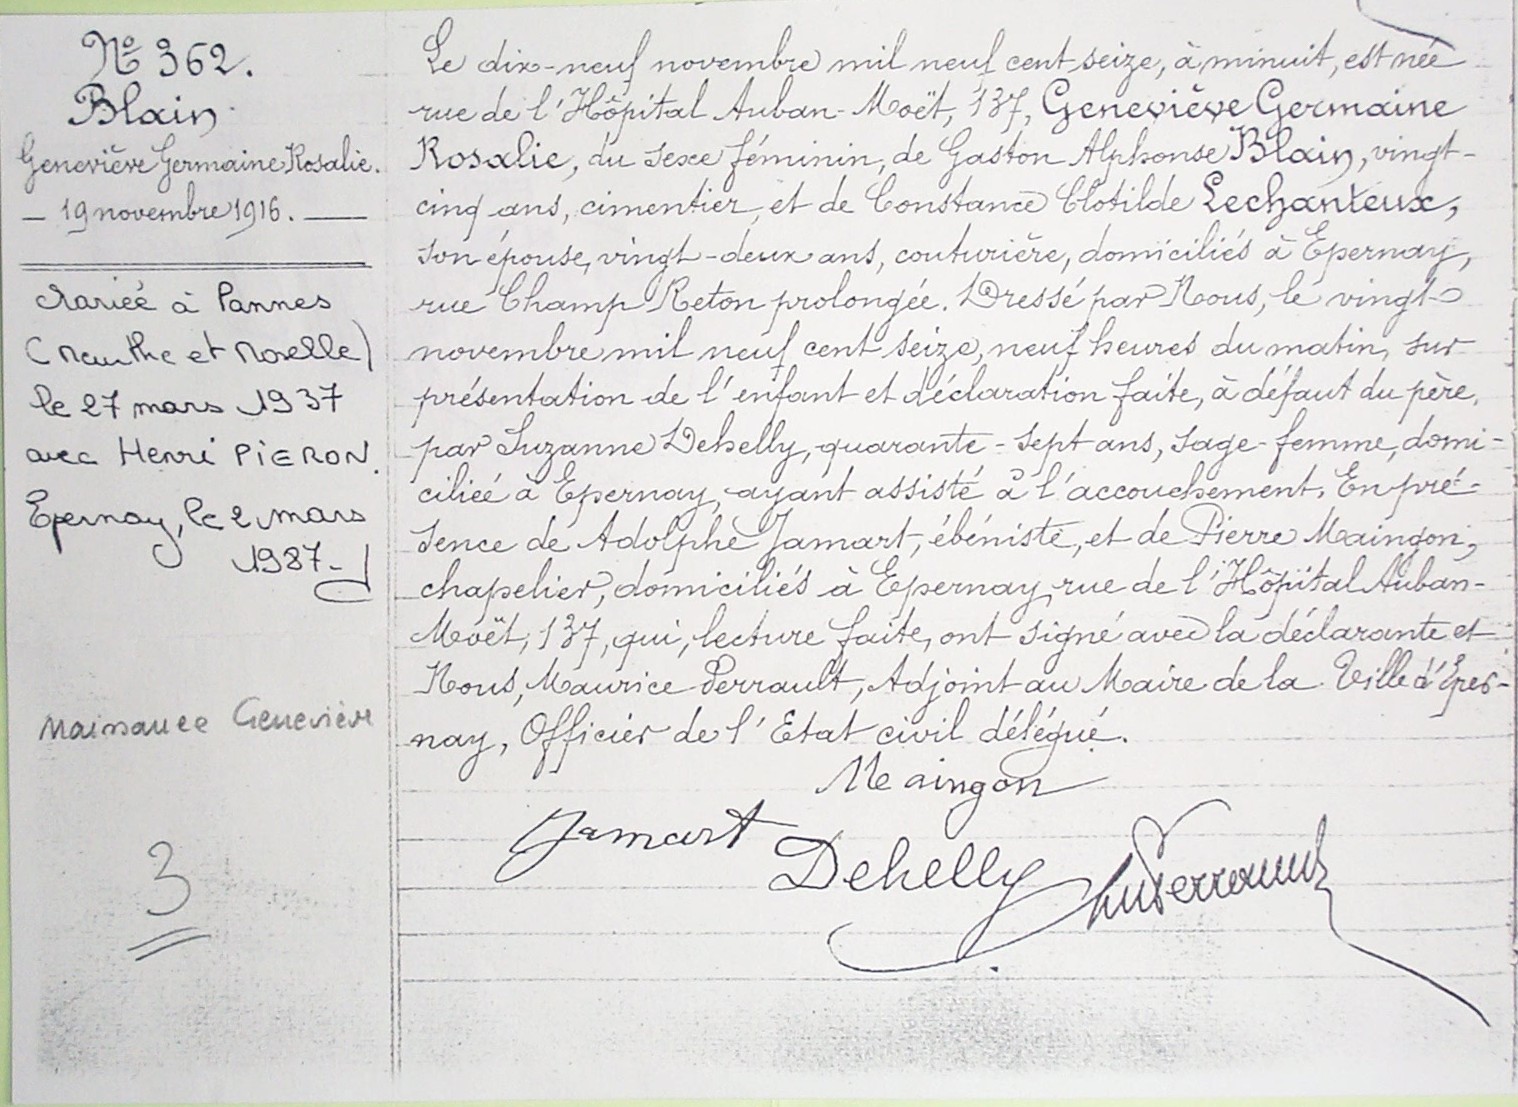 N° 362.
Blain
Geneviève Germaine Rosalie.
19 novembre 1916.
Mariée à Pannes
(Meurthe et Moselle)
le 27 mars 1937
avec Henri PIERON.
Epernay, le 2 mars
1987
Naissance Geneviève
3
Le dix-neuf novembre mil neuf cent seize, à minuit, est née
rue de l'Hôpital Auban-Moët, 137, Geneviève Germaine
Rosalie, du sexe féminin, de Gaston Alphonse Blain, vingt-
cinq ans, cimentier, et de Constance Clotilde Lechanteux,
son épouse, vingt-deux ans, couturière, domiciliés à Epernay,
rue Champ Reton prolongée. Dressé par Nous, le vingt
novembre mil neuf cent seize, neuf heures du matin, sur
présentation de l'enfant et déclaration faite, à défaut du père,
par Suzanne Dehelly, quarante-sept ans, sage-femme, domi-
ciliée à Epernay, ayant assisté à l'accouchement. En pré-
sence de Adolphe Jamart, ébéniste, et de Pierre Maingon,
chapelier, domiciliés à Epernay, rue de l'Hôpital Auban-
Moët, 137, qui, lecture faite, ont signé avec la déclarante et
Nous, Maurice Perrault, Adjoint au Maire de la Ville d'Eper-
nay, Officier de l'Etat civil délégué.
Maingon
Jamart
Dehelly